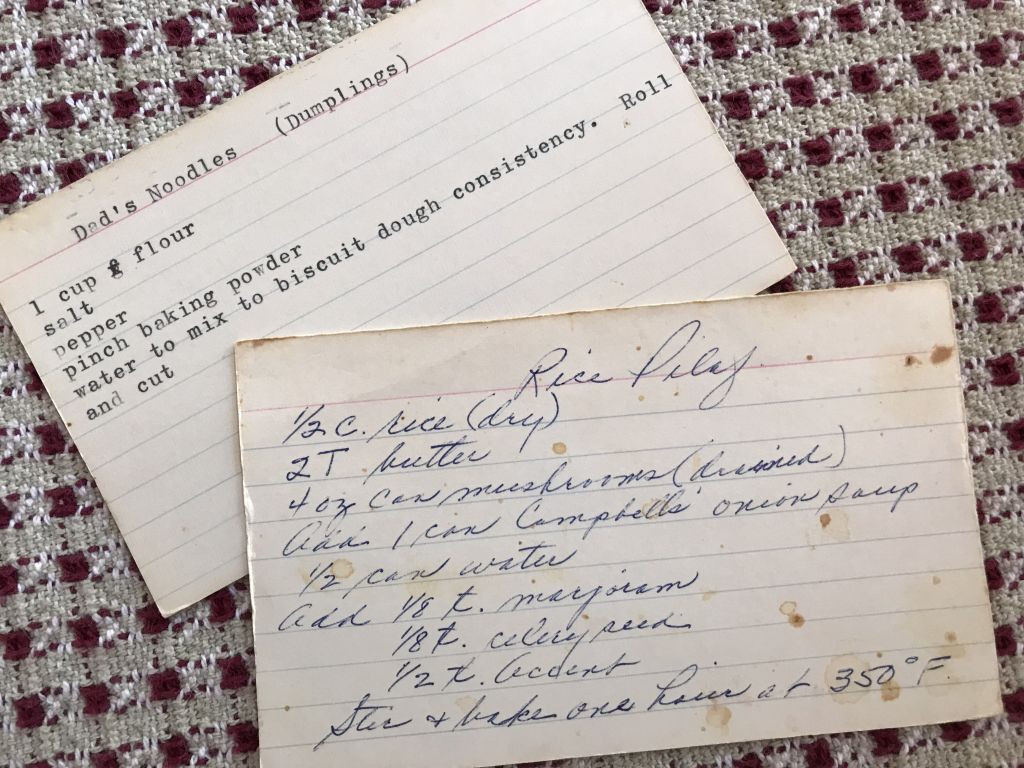 Dad's Noodles (Dumplings)
1 cup f flour
salt
pepper
pinch baking powder
water to mix to biscuit dough consistency. Roll
and cut
Rice Pilaf
1/2 c. rice (dry)
2 T butter
4 oz can mushrooms (drained)
Add 1 can Campbells onion soup
1/2 can water
Add 1/8 t. marjoram
1/8 t. celery seed
1/2 t. Accent
Stir + bake one hour at 350° F.